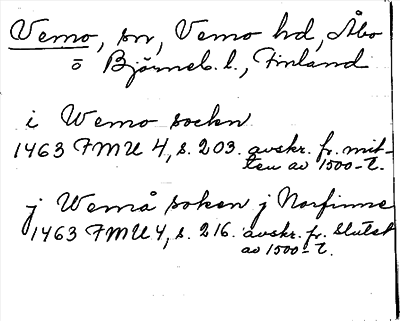 Vemo, sn, Vemo hd, Åbo
o Björneb. l., Finland
i Wemo sockn
1463 FMU 4, s. 203. avskr. fr. mit-
ten av 1500-t.
j Wemå soken j Norfinne
1463 FMU 4, s. 216. avskr. fr. slutet
av 1500-t.